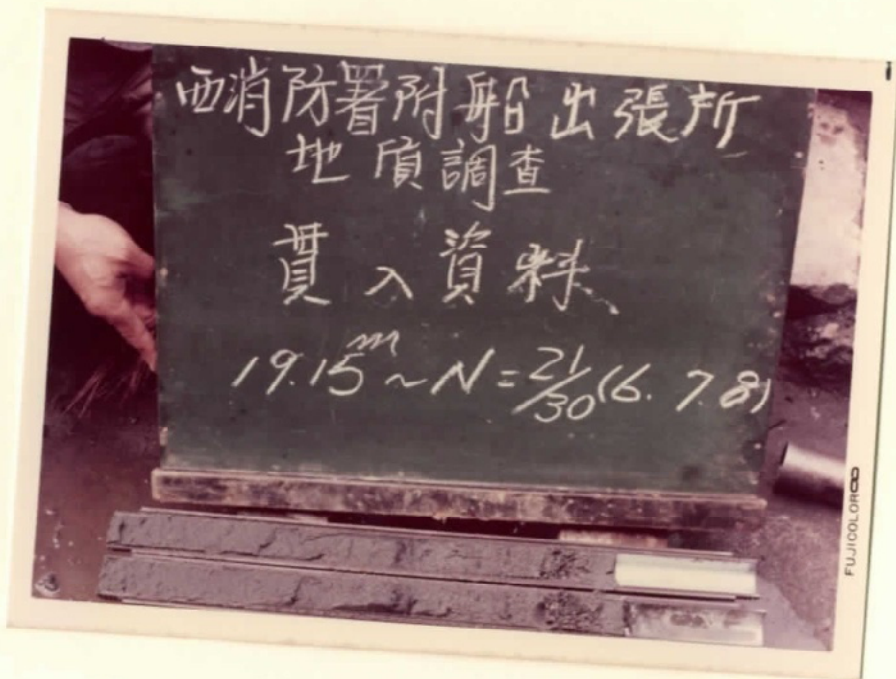 西消防署附船出張所
地質調査
貫入資料
19.15m~N=21/30(6.7.8)
FUJICOLOR